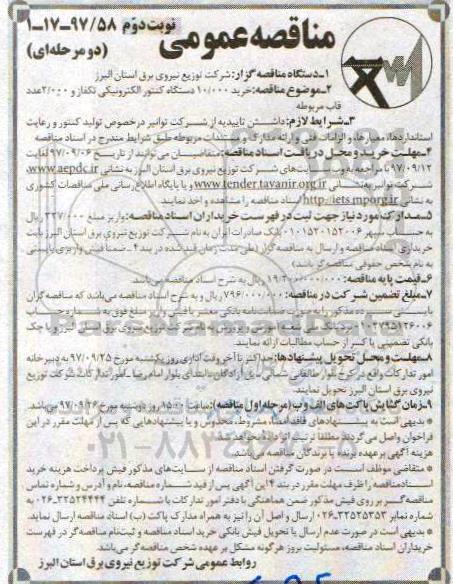 نوبت دوّم ۹۷/۵۸-۱۷-۱
(دو مرحله‌ای)
مناقصه عمومی
۱-دستگاه مناقصه گزار: شرکت توزیع نیروی برق استان البرز
۲-موضوع مناقصه: خرید ۱۰/۰۰۰ دستگاه کنتور الکترونیکی تکفاز و ۲/۰۰۰ عدد
قاب مربوطه
۳-شرایط لازم: داشتن تاییدیه از شرکت توانیر درخصوص تولید کنتور و رعایت
استانداردها، معیارها، و الزامات فنی و ارائه مدارک و مستندات مربوطه طبق شرایط مندرج در اسناد مناقصه
۴-مهلت خرید و محل دریافت اسناد مناقصه: متقاضیان می‌توانند از تاریخ ۹۷/۰۹/۰۶ لغایت
۹۷/۰۹/۱۲ با مراجعه به وب سایت‌های شرکت توزیع نیروی برق استان البرز به نشانی www.aepdc.ir،
شرکت توانیر به نشانی www.tender.tavanir.org.ir و یا پایگاه اطلاع رسانی ملی مناقصات کشوری
به نشانی http://iets.mporg.ir اسناد مناقصه را مشاهده و اخذ نمایند.
۵-مدارک مورد نیاز جهت ثبت در فهرست خریداران اسناد مناقصه: واریز مبلغ ۳۲۷/۰۰۰ ریال
به حساب سپهر ۰۱۰۱۵۲۰۱۵۲۰۰۶ بانک صادرات ایران به نام شرکت توزیع نیروی برق استان البرز بابت
خریداری اسناد مناقصه و ارسال به مناقصه گزار (طی مدت زمان قید شده در بند ۴ـ ضمنا فیش واریزی بایستی
به نام شخص حقوقی مناقصه گر باشد)
۶-قیمت پایه مناقصه: ۱۹/۳۰۰/۰۰۰/۰۰۰ ریال به شرح اسناد مناقصه می‌باشد.
۷-مبلغ تضمین شرکت در مناقصه: ۷۹۶/۰۰۰/۰۰۰ ریال و به شرح اسناد مناقصه می‌باشد که مناقصه گران
بایستی سپرده مذکور را به صورت ضمانت نامه بانکی معتبر یا فیش واریز مبلغ فوق به شماره حساب
۱۰۲۷۹۵۱۲۶۰۰۶ نزد بانک به نام شرکت توزیع نیروی برق استان البرز و یا چک
بانکی تضمینی یا کسر از حساب مطالبات ارائه نمایند.
۸-مهلت و محل تحویل پیشنهادها: حداکثر تا آخر وقت اداری روز یکشنبه مورخ ۹۷/۰۹/۲۵ به دبیرخانه
امور تدارکات واقع در کرج بلوار طالقانی شمالی ـ بلوار امام رضا ـ امور تدارکات شرکت توزیع
نیروی برق استان البرز تحویل نمایند.
۹-زمان گشایش پاکت‌های الف و ب (مرحله اول مناقصه): ساعت ۱۵:۰۰ روز دوشنبه مورخ ۹۷/۰۹/۲۶ می‌باشد.
* بدیهی است به پیشنهادهای فاقد امضاء، مشروط، مخدوش و یا پیشنهادهایی که پس از مهلت مقرر در این
فراخوان واصل می‌گردد مطلقا ترتیب اثر داده نخواهد شد.
* هزینه آگهی بر عهده برنده یا برندگان مناقصه می‌باشد.
* متقاضی موظف است در صورت گرفتن اسناد مناقصه از سایت‌های مذکور فیش پرداخت هزینه خرید
اسناد مناقصه را ظرف مهلت مقرر در بند ۴ این آگهی پس از قید شماره مناقصه، نام و آدرس و شماره تماس
مناقصه گر بر روی فیش مذکور ضمن هماهنگی با دفتر امور تدارکات با شماره تلفن ۳۲۵۲۴۴۴۴-۰۲۶ به
شماره نمابر ۳۲۵۲۵۳۵۳-۰۲۶ ارسال و اصل آن را نیز به همراه مدارک پاکت (ب) اسناد مناقصه ارسال نماید.
* بدیهی است در صورت عدم ارسال یا تحویل فیش بانکی خرید اسناد مناقصه و ثبت نام مناقصه گر در فهرست
خریداران اسناد مناقصه، مسئولیت بروز هرگونه مشکل بر عهده شخص مناقصه گر می‌باشد.
روابط عمومی شرکت توزیع نیروی برق استان البرز